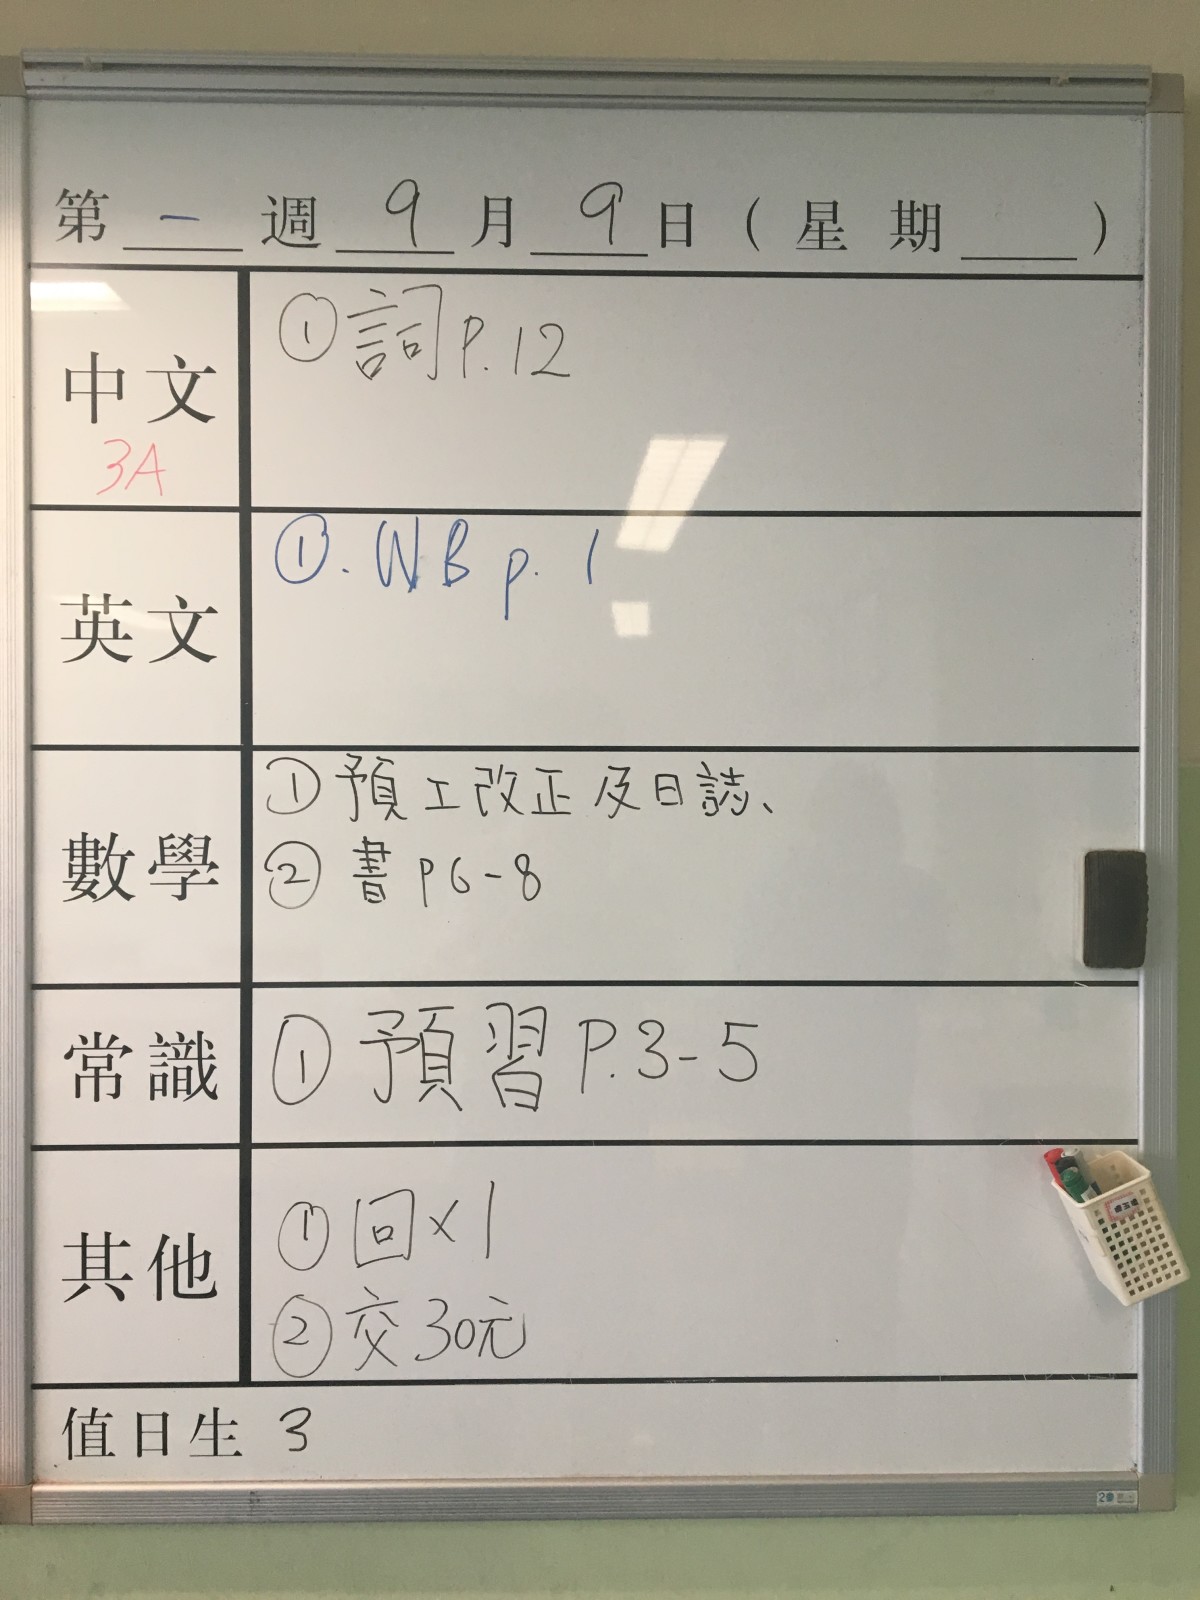 第 一 週 9 月 9 日 ( 星 期 )
中文
3A
① 詞 P.12
英文
①. WB p. 1
數學
① 預工改正及日誌、
② 書 P6-8
常識
① 預習 P.3-5
其他
① 回×1
② 交30元
值日生 3